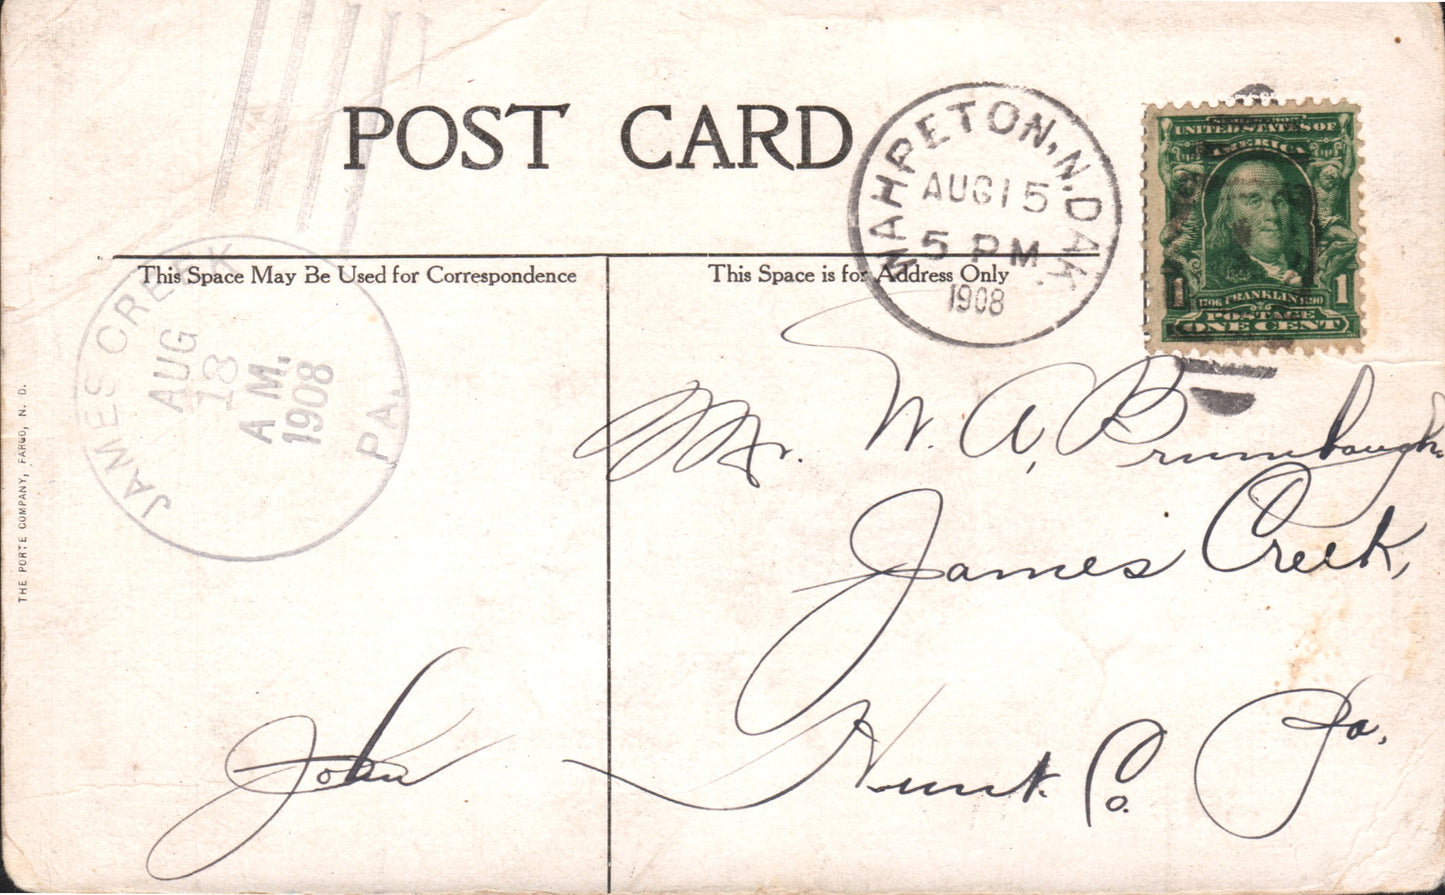 POST CARD
WAHPETON, N. DAK.
AUG 15
5 PM
1908
UNITED STATES OF
AMERICA
1 1
1706 FRANKLIN 1790
POSTAGE
ONE CENT
This Space May Be Used for Correspondence
This Space is for Address Only
JAMES CREEK
PA.
AUG
18
A M.
1908
Mr. W. A. Brumbaugh.
James Creek,
Hunt. Co. Pa.
John
THE PORTE COMPANY, FARGO, N. D.